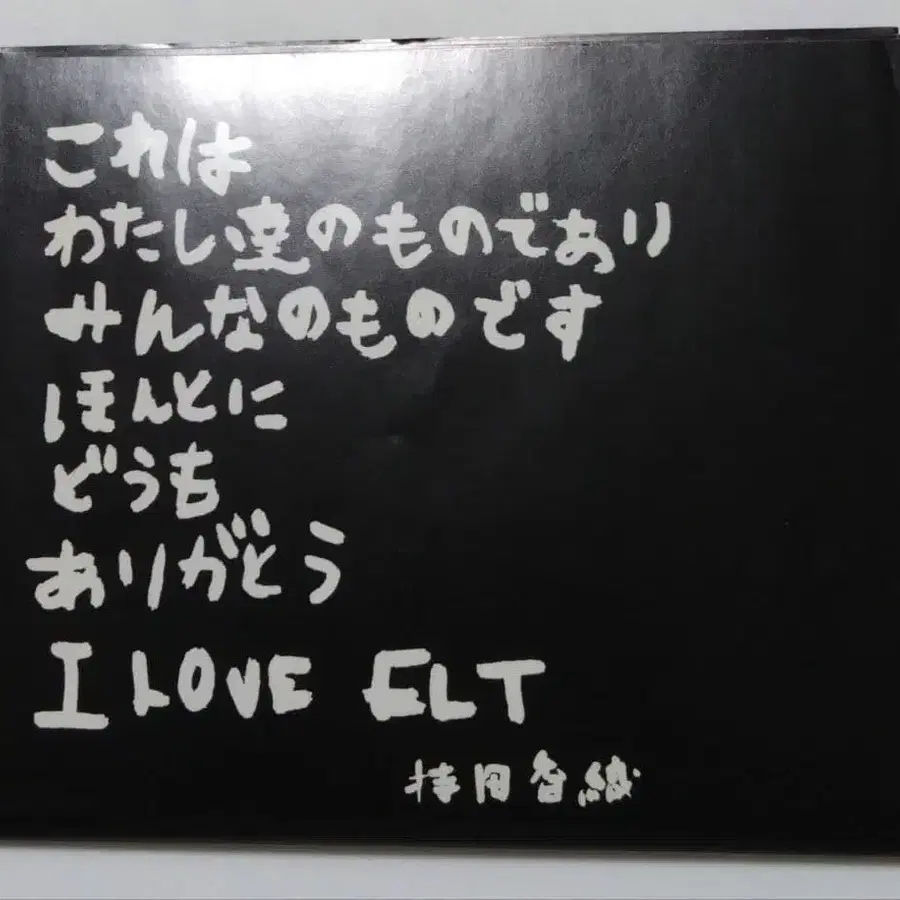 これは
わたし達のものであり
みんなのものです
ほんとに
どうも
ありがとう
I LOVE ELT
持田香織